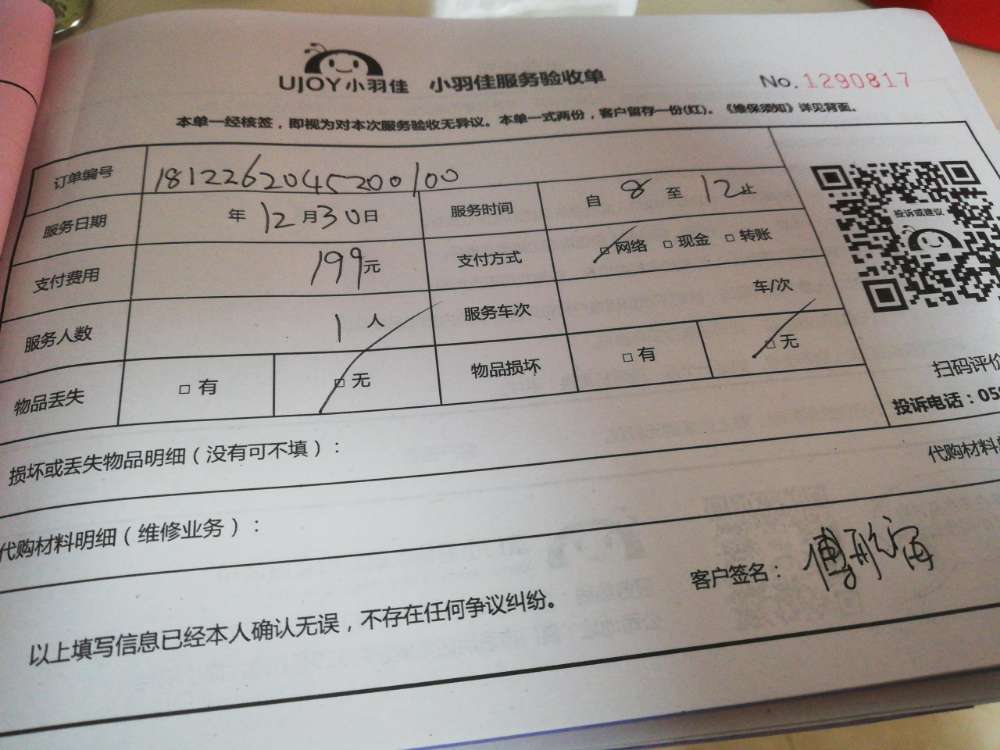 UJOY小羽佳 小羽佳服务验收单 No.1290817
本单一经核签，即视为对本次服务验收无异议。本单一式两份，客户留存一份(红)。《维保须知》详见背面。
订单编号 181226204520010​0
服务日期 年12月30日 服务时间 自8至12止
投诉或建议
支付费用 199元 支付方式 □网络 □现金 □转账
服务人数 1人 服务车次 车/次
物品丢失 □有 □无 物品损坏 □有 □无
扫码评价
投诉电话：05
损坏或丢失物品明细（没有可不填）：
代购材料
代购材料明细（维修业务）：
客户签名：
以上填写信息已经本人确认无误，不存在任何争议纠纷。